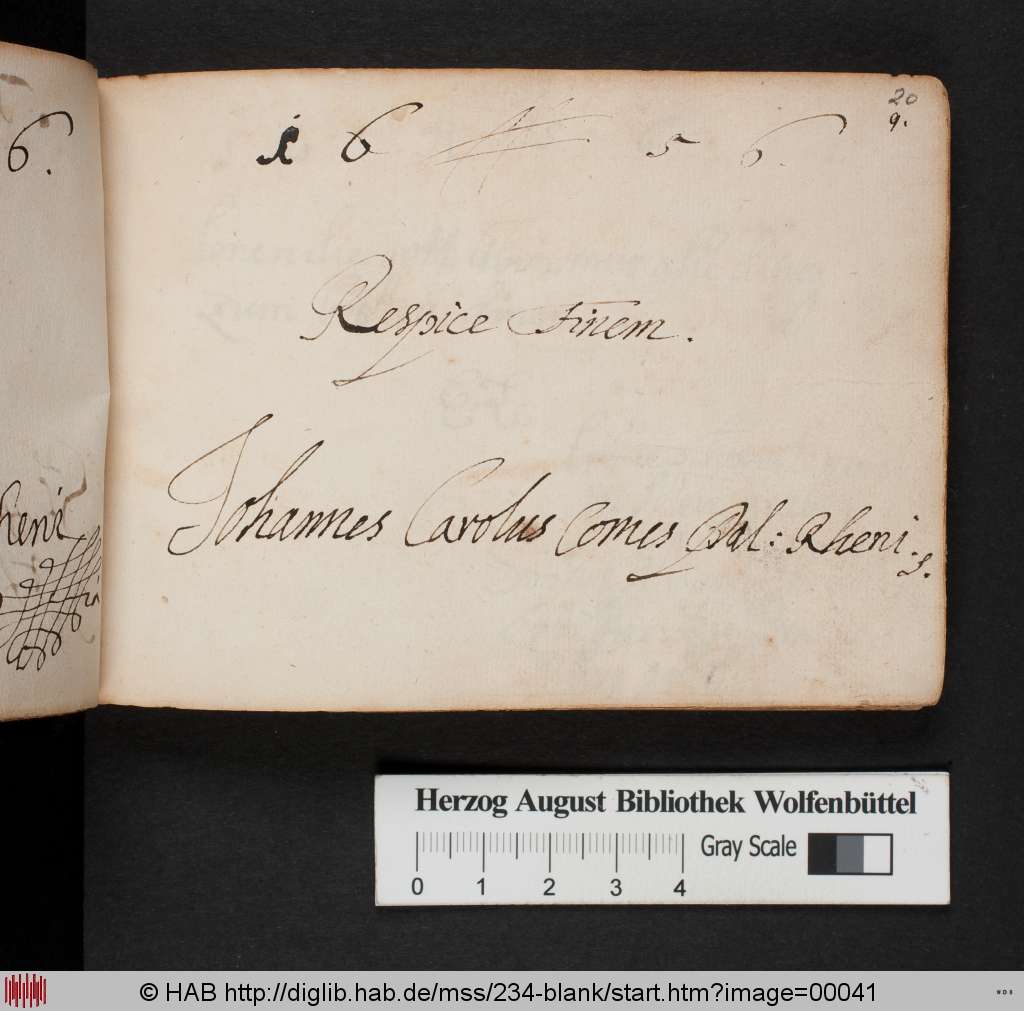 6.
heni
20
9.
1 6 5 6.
Respice Finem.
Johannes Carolus Comes Pal: Rheni.
s.
Herzog August Bibliothek Wolfenbüttel
0 1 2 3 4
Gray Scale
© HAB http://diglib.hab.de/mss/234-blank/start.htm?image=00041